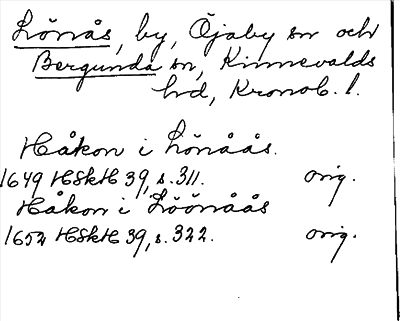 Lönås, by, Öjaby sn och
Bergunda sn, Kinnevalds
hd, Kronob. l.
Håkon i Lönåås.
1649 HSkH 39, s. 311. orig.
Håkon i Löönåås
1652 HSkH 39, s. 322. orig.